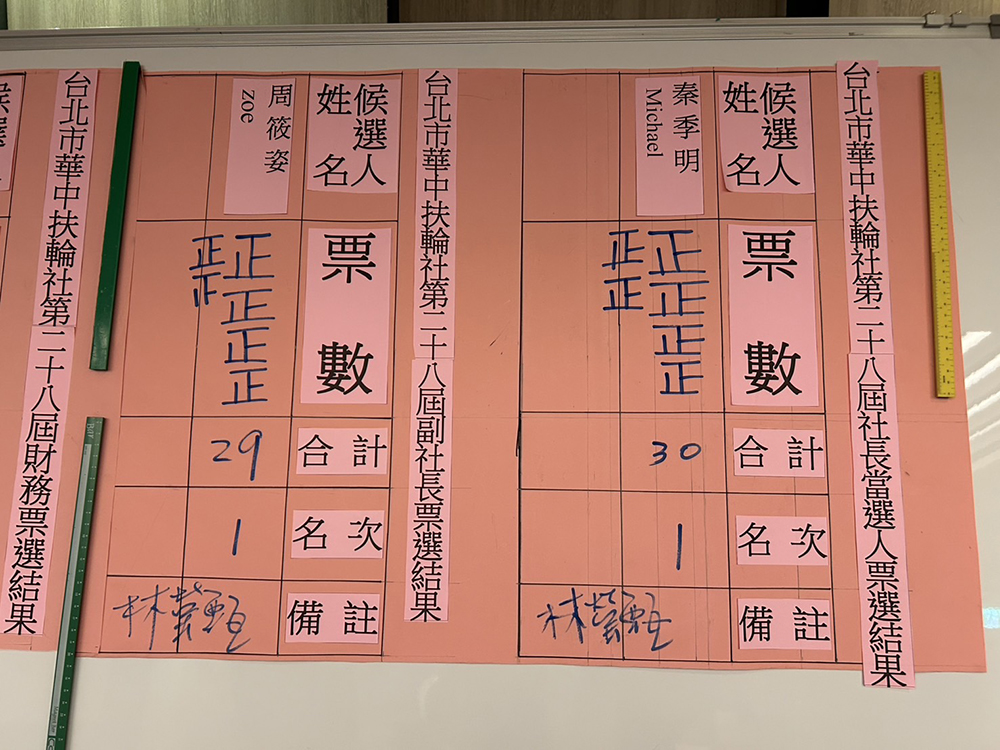 台北市華中扶輪社第二十八屆社長當選人票選結果
候選人
姓名
秦季明
Michael
票數
正正正正
正正
合計
30
名次
1
備註
台北市華中扶輪社第二十八屆副社長票選結果
候選人
姓名
周筱姿
zoe
票數
正正正正
正
合計
29
名次
1
備註
台北市華中扶輪社第二十八屆財務票選結果